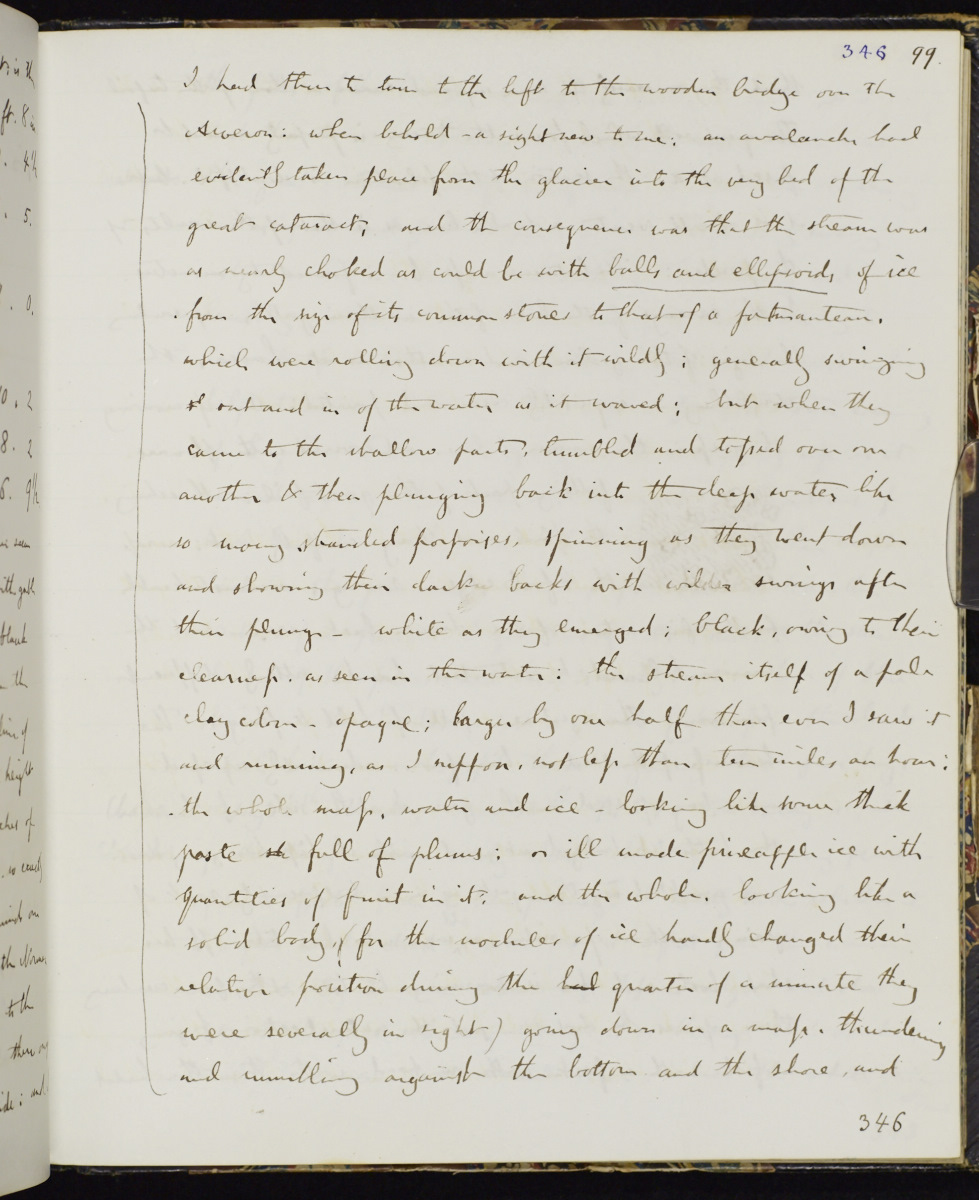 346 99.
I had then to turn to the left to the wooden bridge over the
Arveron: when behold - a sight new to me; an avalanche had
evidently taken place from the glacier into the very bed of the
great cataract; and the consequence was that the stream was
as nearly choked as could be with balls and ellipsoids of ice
from the size of its common stones to that of a portmanteau,
which were rolling down with it wildly; generally swinging
out and in of the water as it waved; but when they
came to the shallow parts, tumbled and tossed over one
another & then plunging back into the deep water like
so many stranded porpoises, spinning as they went down
and showing their dark backs with wilder swings after
their plunge - white as they emerged; black, owing to their
clearness, as seen in the water: the stream itself of a pale
clay colour - opaque; larger by one half than ever I saw it
and running, as I suppose, not less than ten miles an hour;
the whole mass, water and ice - looking like some thick
paste full of plums; or ill made pineapple ice with
quantities of fruit in it: and the whole, looking like a
solid body, (for the nodules of ice hardly changed their
relative position during the quarter of a minute they
were severally in sight) going down in a mass, thundering
and rumbling against the bottom and the shore, and
346